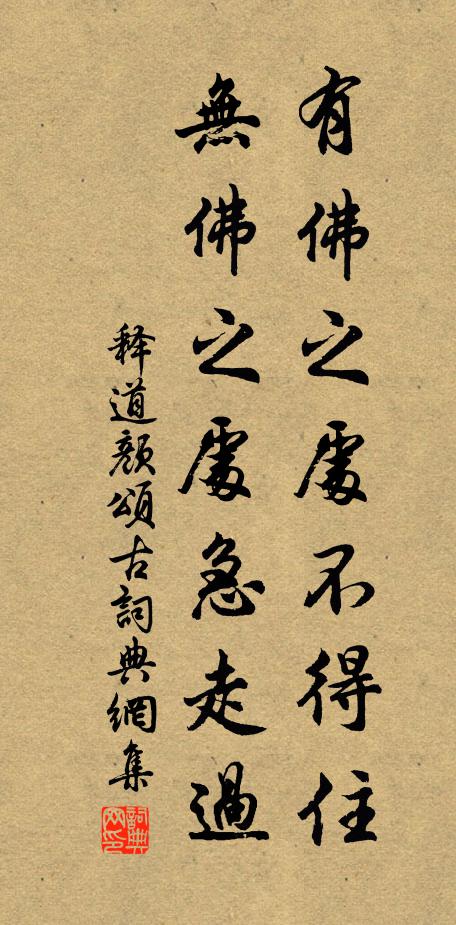 有佛之處不得住
無佛之處急走過
释道颜頌古詞典網集
詞典网印